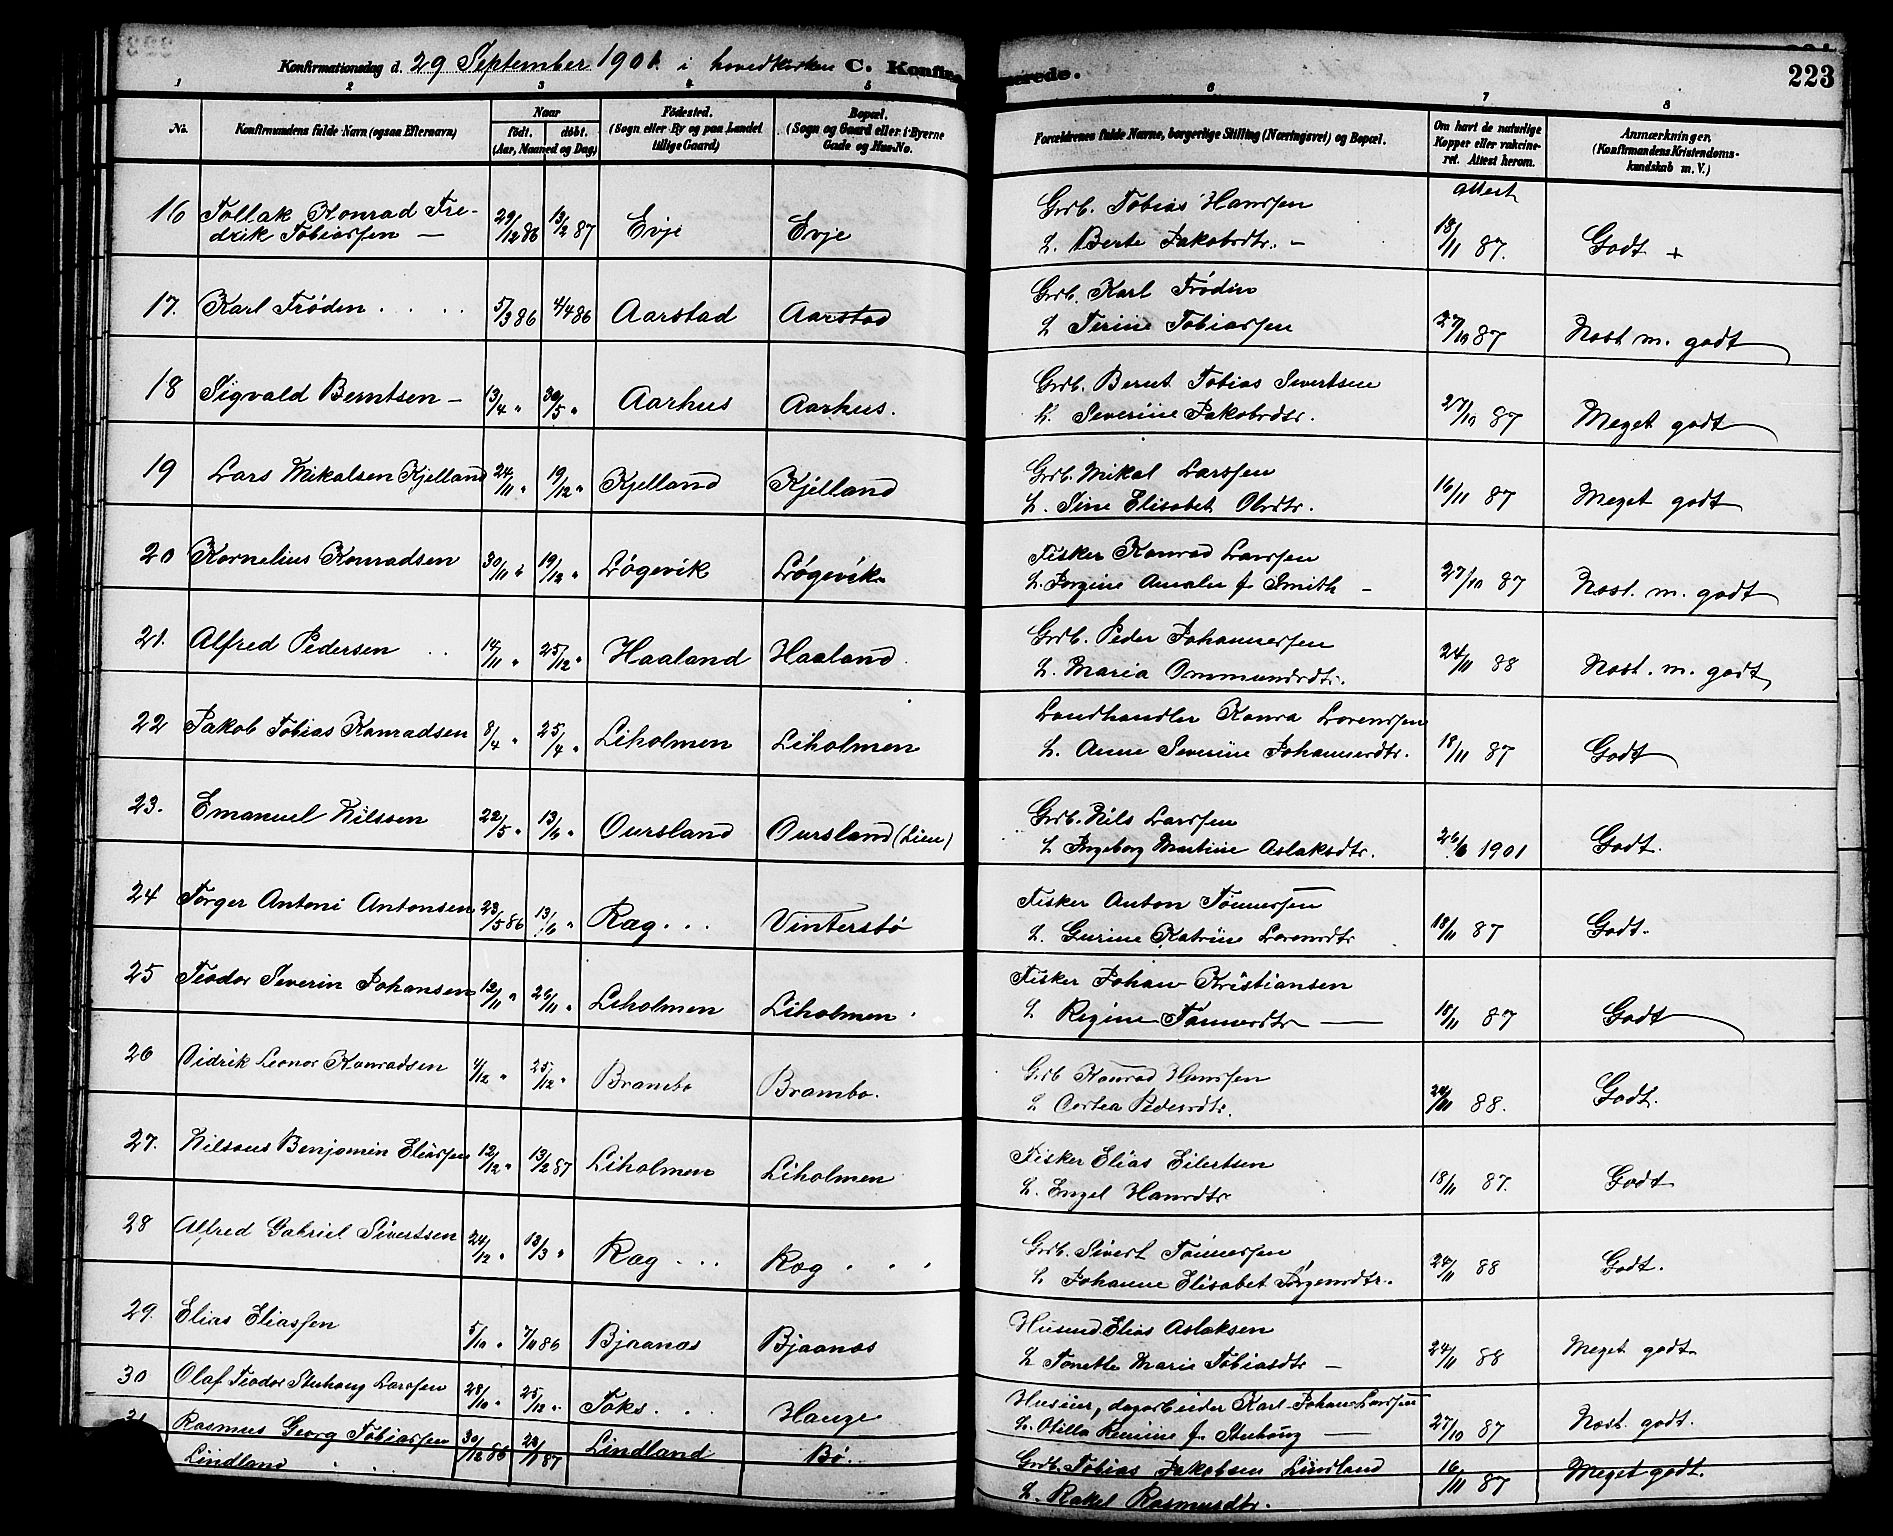 Konfirmationsdag d. 29 September 1901. i hovedkirken C. Konfirmerede. 223
1 2 3 4 5 6 7 8
No. Konfirmandens fulde Navn (ogsaa Efternavn) Naar født. døbt. (Aar, Maaned og Dag) Fødested. (Sogn eller By og paa Landet tillige Gaard) Bopæl. (Sogn og Gaard eller i Byerne Gade og Hus-No. Forældrenes fulde Navne, borgerlige Stilling (Næringsvei) og Bopæl. Om havt de naturlige Kopper eller vakcineret. Attest herom. Anmærkninger. (Konfirmandens Kristendomskundskab m. V.)
attest
16 Tollak Konrad Fre- 29/12 86 13/2 87 Evje Evje Grdb. Tobias Hanssen 18/11 87. Godt +
drik Tobiassen — H. Berte Jakobsdtr. –
17. Karl Frøden . . . . 5/3 86 4/4 86 Aarstad Aarstad Grdb. Karl Frøden 27/10 87 Nost m. godt
H Terine Tobiassen
18 Sigvald Berntsen – 13/4 " 30/5 " Aarhus Aarhus. Grdb. Bernt Tobias Sivertsen 27/10 87 Meget godt
H. Severine Jakobsdtr.
19 Lars Mikalsen Kjelland 24/11 " 19/12 " Kjelland Kjelland Grdb. Mikal Larssen 16/11 87 Meget godt
H. Sine Elisabet Olsdtr.
20 Kornelius Konradsen 30/11 " 19/12 " Løgevik Løgevik Fisker Konrad Larssen 27/10 87 Nost. m. godt
H. Jorgine Amalie f. Smith –
21. Alfred Pedersen . . 14/11 " 25/12 " Haaland Haaland. Grdb. Peder Johannessen 24/11 88 Nost. m. godt
H. Maria Ommundsdtr.
22 Jakob Tobias Konradsen 8/4 " 25/4 " Liholmen Liholmen Landhandler Konra Lorenssen 18/11 87 Godt
H. Anne Severine Johannesdtr.
23. Emanuel Nilsen 22/5 " 13/6 " Oursland Oursland (Lien) Grdb. Nils Larssen 26/6 1901 Godt.
H Ingeborg Martine Aslaksdtr.
24 Torger Antoni Antonsen 23/5 86 13/6 " Rag . . . Vinterstø Fisker Anton Tønnessen 18/11 87 Godt.
H. Gurine Katrine Lorensdtr
25 Teodor Severin Johansen 12/11 " 26/11 " Liholmen Liholmen. Fisker Johan Kristiansen 18/11 87 Godt
H Regine Tønnesdtr —
26 Didrik Leonor Konradsen 4/12 " 25/12 " Brambo Brambo. Grdb Konrad Hanssen 24/11 88. Godt.
H Cortea Pedersdtr.
27. Nilsous Benjamin Eliassen 12/12 " 13/2 87 Liholmen Liholmen Fisker Elias Eilertsen 18/11 87. Godt
H. Engel Hansdtr
28 Alfred Gabriel Sivertsen 24/12 " 13/3 " Rag . . . Rag . . . Grdb. Sivert Tønnessen 24/11 88 Godt.
H Johanne Elisabet Jørgensdtr.
29. Elias Eliassen 5/10 " 7/11 86 Bjaanæs Bjaanæs Husmd Elias Aslaksen 24/11 88 Meget godt
H Tonette Marie Tobiasdtr –
30 Olaf Teodor Stuhaug Larssen 28/10 " 25/12 " Toks . . . Hauge Huseier, dagarbeider Karl Johan Larssen 27/10 87 Nost. godt.
H. Otilla f. Stuhaug —
31 Rasmus Georg Tobiassen 30/12 86 23/1 87 Lindland Bø. Grdb. Tobias Jakobsen Lindland 16/11 87 Meget godt.
Lindland . . . H. Rakel Rasmusdtr.